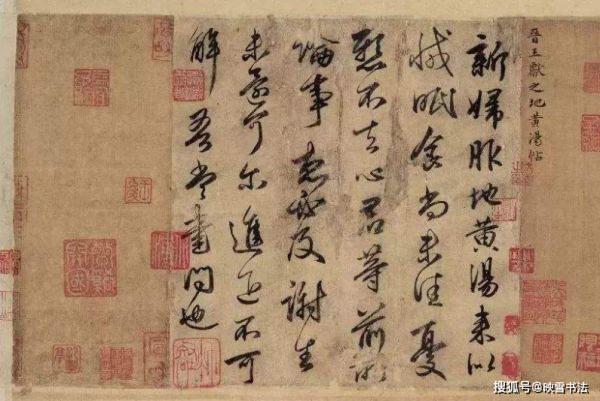 晉王獻之地黄湯帖
新婦服地黄湯来似
減眠食尚未佳憂
懸不去心君等前所
論事想必及謝生
未還可尔進退不可
解吾當書問也
搜狐号@映雪书法